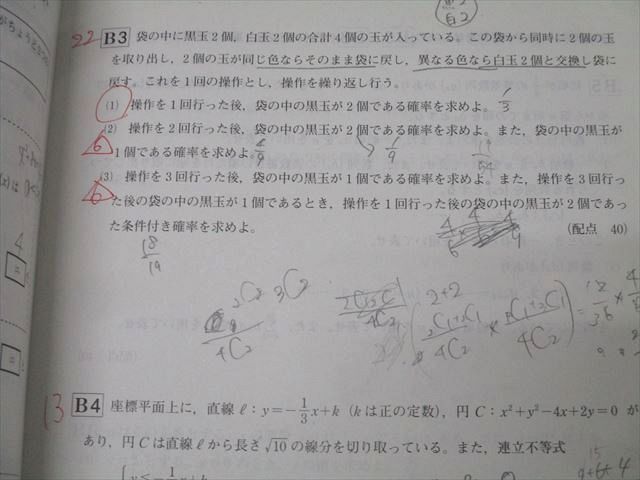 黒2
白2
22 B3 袋の中に黒玉2個，白玉2個の合計4個の玉が入っている。この袋から同時に2個の玉
を取り出し，2個の玉が同じ色ならそのまま袋に戻し，異なる色なら白玉2個と交換し袋に
戻す。これを1回の操作とし，操作を繰り返し行う。
(1) 操作を1回行った後，袋の中の黒玉が2個である確率を求めよ。 1/3
(2) 操作を2回行った後，袋の中の黒玉が2個である確率を求めよ。また，袋の中の黒玉が
6 1個である確率を求めよ。 4/9 1/9
(3) 操作を3回行った後，袋の中の黒玉が1個である確率を求めよ。また，操作を3回行っ
6 た後の袋の中の黒玉が1個であるとき，操作を1回行った後の袋の中の黒玉が2個であっ
た条件付き確率を求めよ。
(配点 40)
18/19
2C2 3C2
4C2
2+2
2C1+2C1/4C2 × 2C1+2C1/4C2 =
13 B4 座標平面上に，直線ℓ：y=-1/3x+k（kは正の定数），円C：x²+y²-4x+2y=0 が
あり，円Cは直線ℓから長さ√10の線分を切り取っている。また，連立不等式